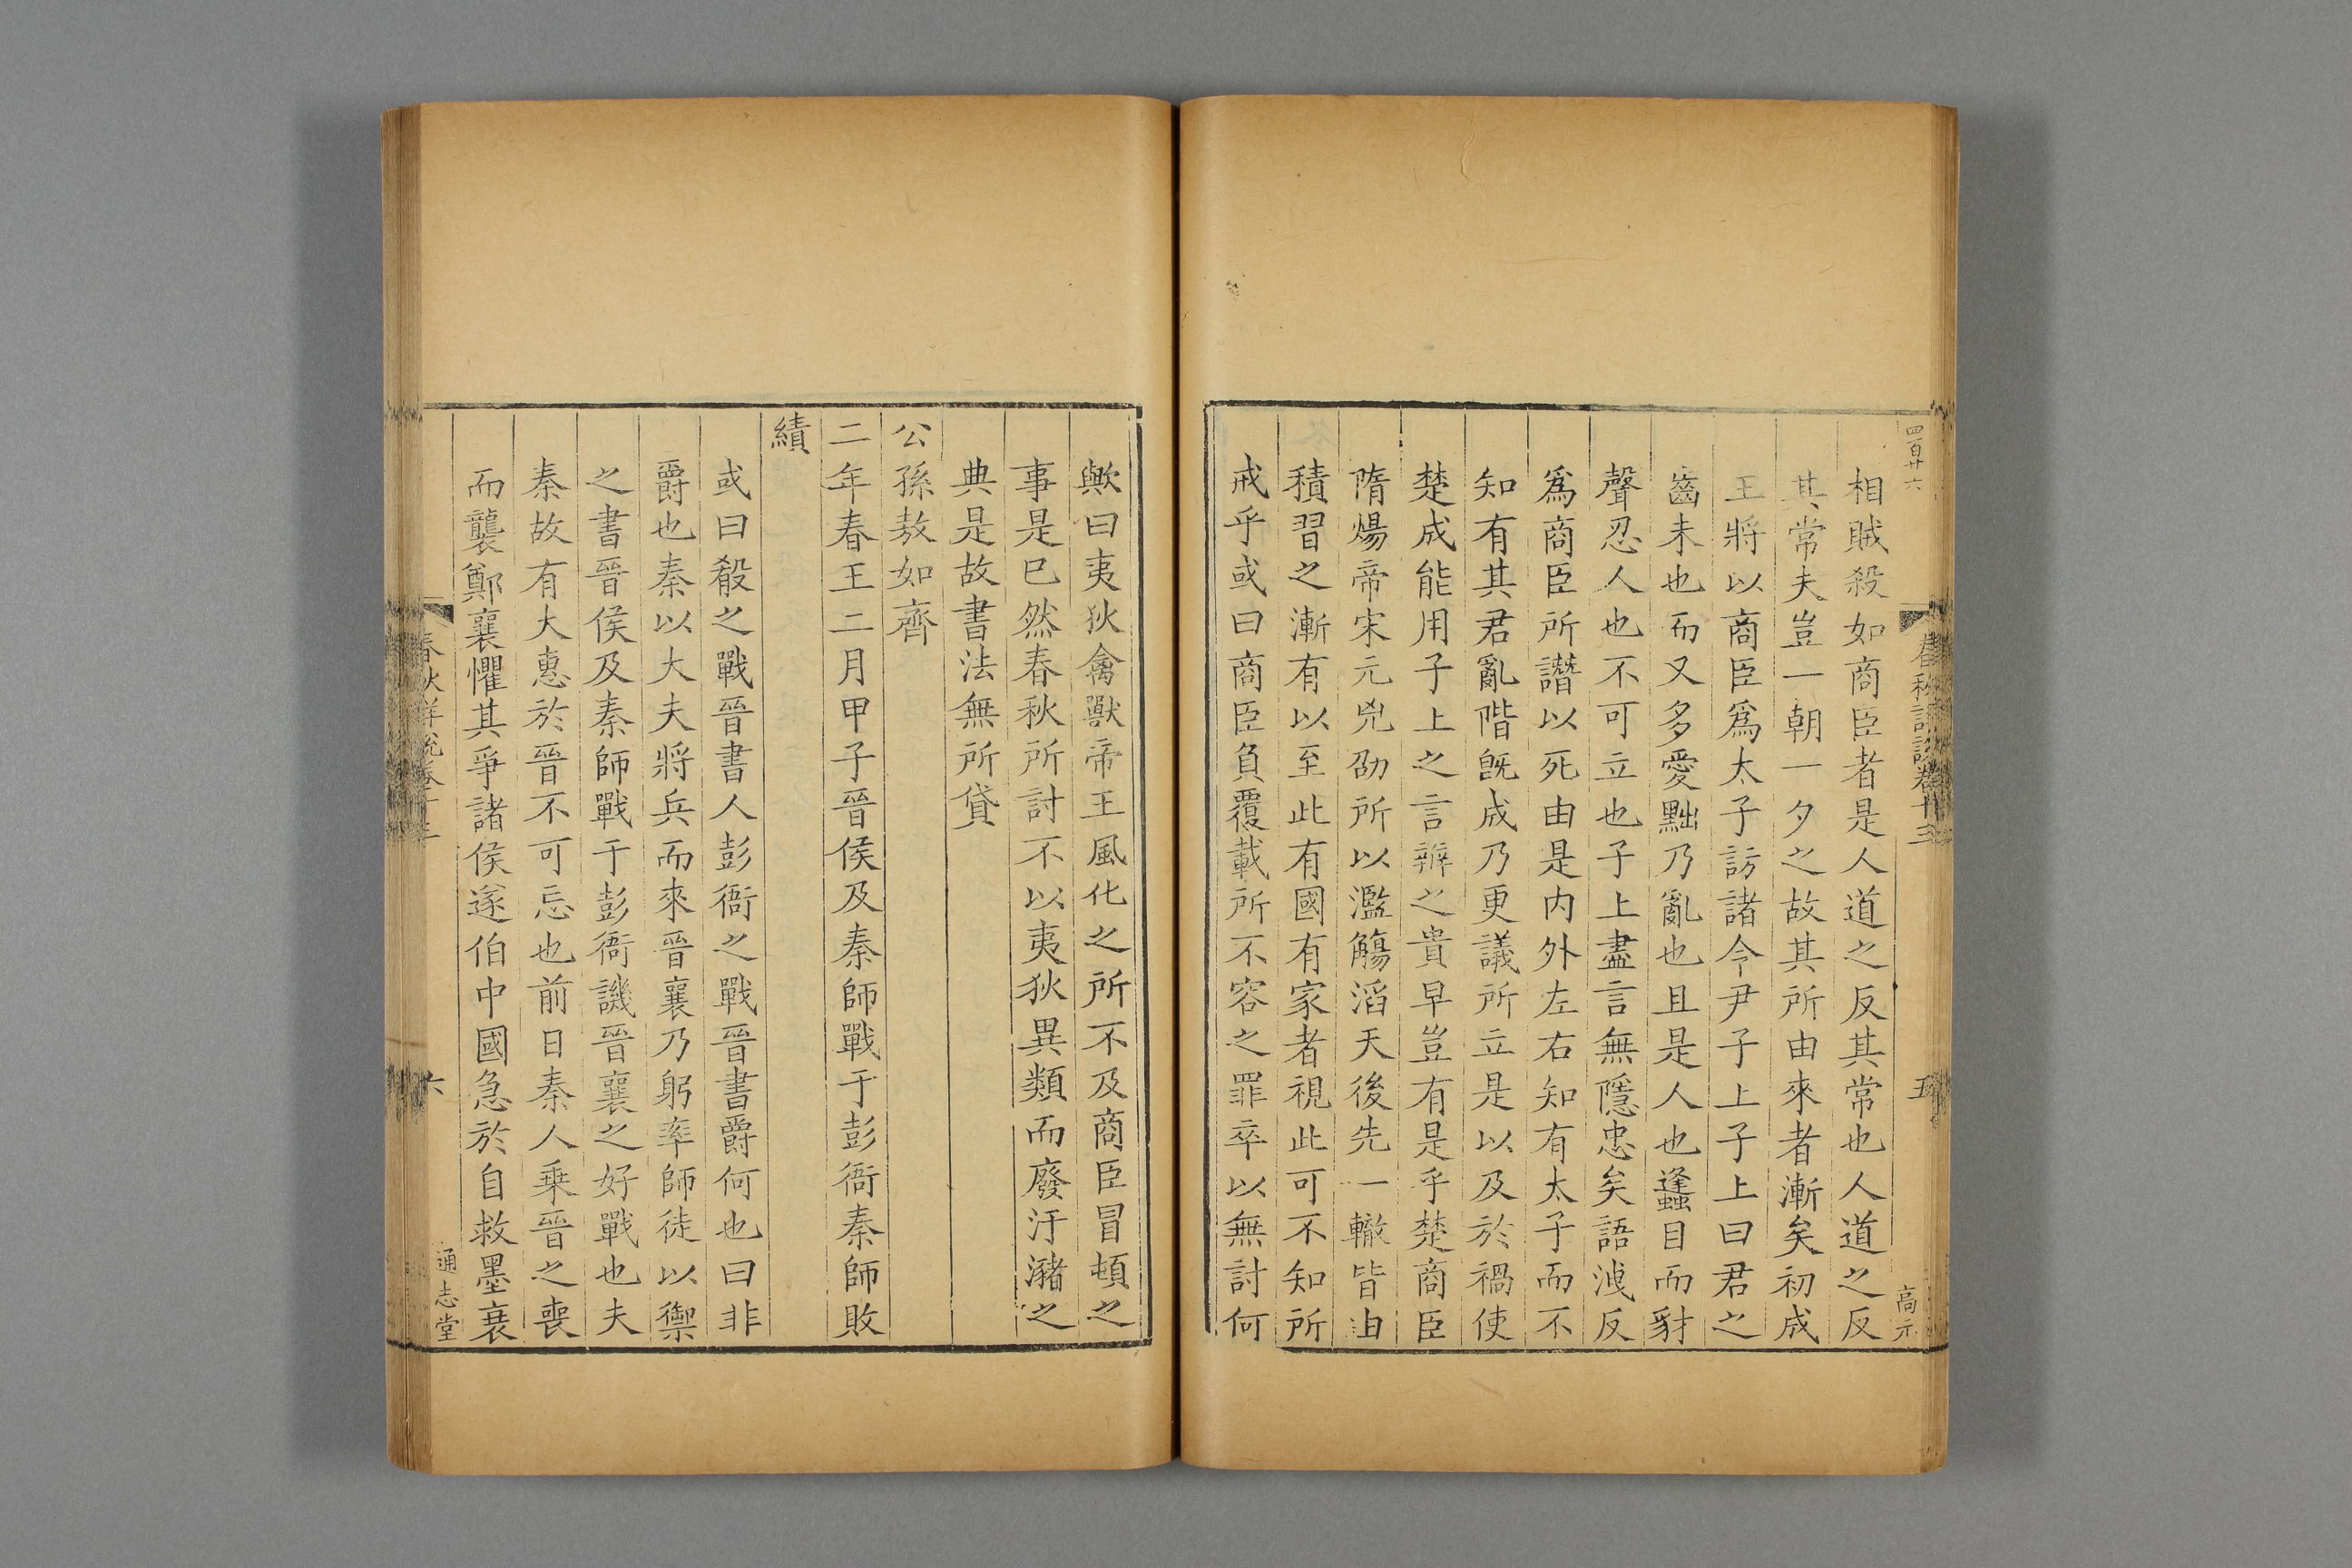 四百廿六
春秋詳說卷十三
五
高元
相賊殺如商臣者是人道之反其常也人道之反
其常夫豈一朝一夕之故其所由來者漸矣初成
王將以商臣爲太子訪諸令尹子上子上曰君之
齒未也而又多愛黜乃亂也且是人也蠭目而豺
聲忍人也不可立也子上盡言無隱忠矣語洩反
爲商臣所譖以死由是内外左右知有太子而不
知有其君亂階旣成乃更議所立是以及於禍使
楚成能用子上之言辨之貴早豈有是乎楚商臣
隋煬帝宋元兇劭所以濫觴滔天後先一轍皆由
積習之漸有以至此有國有家者視此可不知所
戒乎或曰商臣負覆載所不容之罪卒以無討何
歟曰夷狄禽獸帝王風化之所不及商臣冒頓之
事是巳然春秋所討不以夷狄異類而廢汙瀦之
典是故書法無所貸
公孫敖如齊
二年春王二月甲子晉侯及秦師戰于彭衙秦師敗
績
或曰殽之戰晉書人彭衙之戰晉書爵何也曰非
爵也秦以大夫將兵而來晉襄乃躬率師徒以禦
之書晉侯及秦師戰于彭衙譏晉襄之好戰也夫
秦故有大惠於晉不可忘也前日秦人乗晉之喪
而襲鄭襄懼其爭諸侯遂伯中國急於自救墨衰
春秋詳說卷十三
六
通志堂